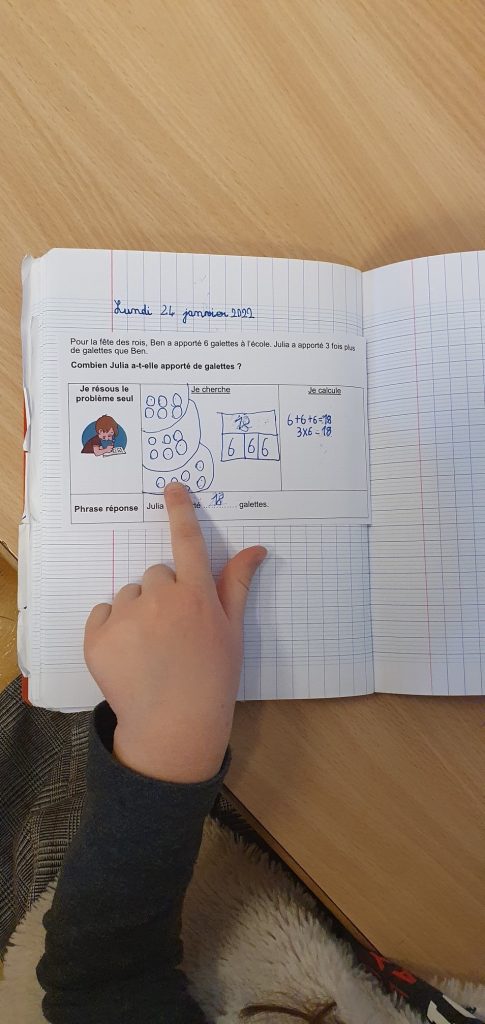 Lundi 24 janvier 2022
Pour la fête des rois, Ben a apporté 6 galettes à l'école. Julia a apporté 3 fois plus
de galettes que Ben.
Combien Julia a-t-elle apporté de galettes ?
Je résous le
problème seul
Je cherche
18
6 6 6
Je calcule
6+6+6=18
3x6=18
Phrase réponse
Julia té 18 galettes.